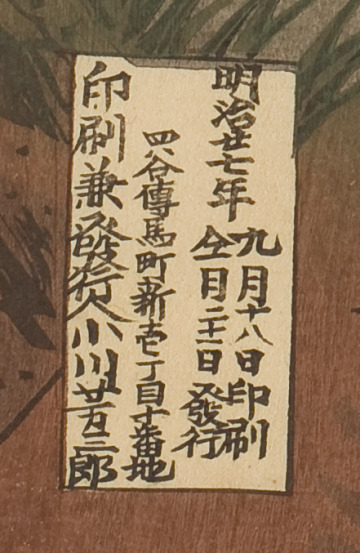 明治廿七年
九月十八日印刷
仝月二十一日發行
四ツ谷傳馬町新壱丁目十番地
印刷兼發行人小川廿三郎